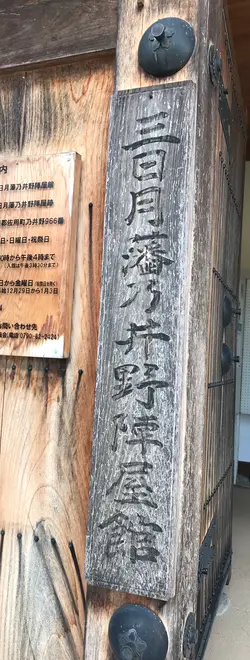 三日月藩乃井野陣屋館
内
日月藩乃井野陣屋館
日月藩乃井野陣屋跡
郡佐用町乃井野966番
日・日曜日・祝祭日
時から午後4時まで
(入館は午後3時30分まで)
日から金曜日
12月29日から1月3日
お問い合わせ先